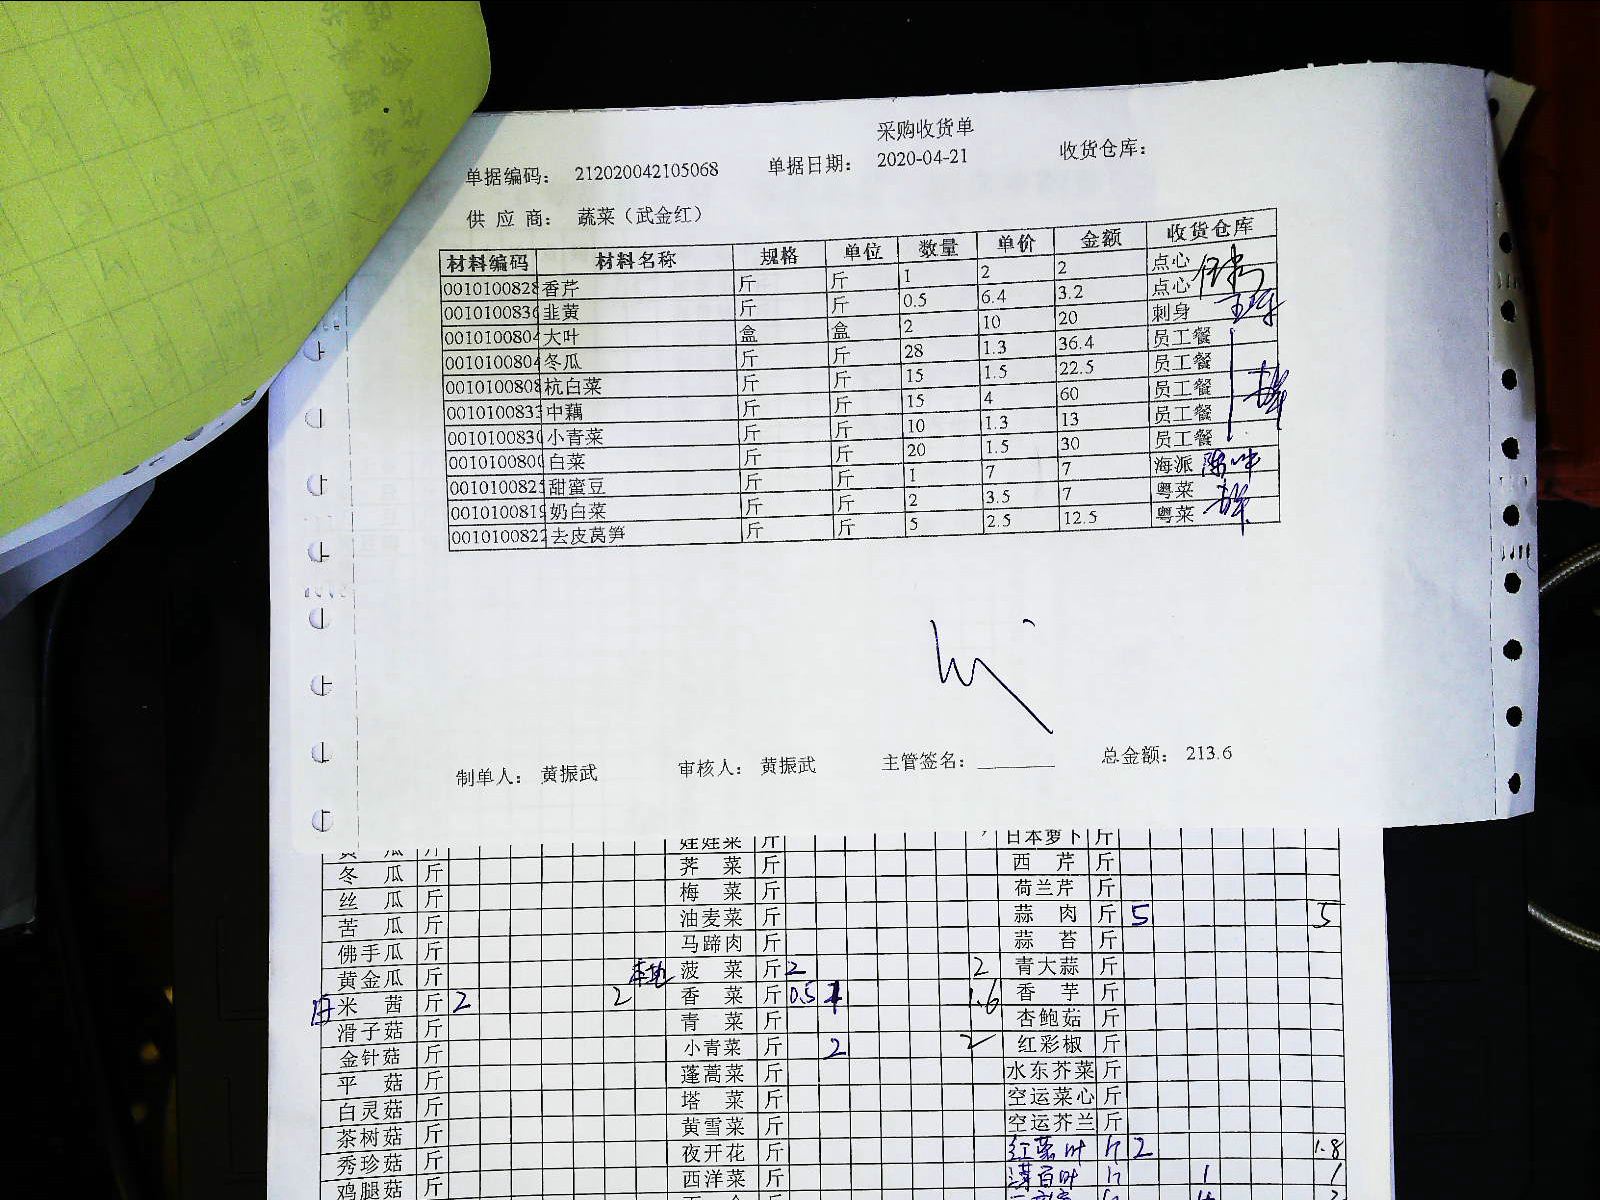 采购收货单
单据编码： 212020042105068 单据日期： 2020-04-21 收货仓库：
供 应 商： 蔬菜（武金红）
材料编码 材料名称 规格 单位 数量 单价 金额 收货仓库
0010100828 香芹 斤 斤 1 2 2 点心
0010100836 韭黄 斤 斤 0.5 6.4 3.2 点心
001010080 大叶 盒 盒 2 10 20 刺身
001010080 冬瓜 斤 斤 28 1.3 36.4 员工餐
0010100808 杭白菜 斤 斤 15 1.5 22.5 员工餐
001010083 中藕 斤 斤 15 4 60 员工餐
001010083 小青菜 斤 斤 10 1.3 13 员工餐
001010080 白菜 斤 斤 20 1.5 30 员工餐
001010082 甜蜜豆 斤 斤 1 7 7 海派
001010081 奶白菜 斤 斤 2 3.5 7 粤菜
001010082 去皮莴笋 斤 斤 5 2.5 12.5 粤菜
制单人： 黄振武 审核人： 黄振武 主管签名： 总金额： 213.6
黄 瓜 斤 娃娃菜 斤 日本萝卜 斤
冬 瓜 斤 荠 菜 斤 西 芹 斤
丝 瓜 斤 梅 菜 斤 荷兰芹 斤
苦 瓜 斤 油麦菜 斤 蒜 肉 斤 5 5
佛手瓜 斤 马蹄肉 斤 蒜 苔 斤
黄金瓜 斤 本地 菠 菜 斤 2 2 青大蒜 斤
米 茜 斤 2 2 香 菜 斤 0.5 1 1.6 香 芋 斤
滑子菇 斤 青 菜 斤 杏鲍菇 斤
金针菇 斤 小青菜 斤 2 2 红彩椒 斤
平 菇 斤 蓬蒿菜 斤 水东芥菜 斤
白灵菇 斤 塔 菜 斤 空运菜心 斤
茶树菇 斤 黄雪菜 斤 空运芥兰 斤
秀珍菇 斤 夜开花 斤 红菜叶 斤 2 1.8
鸡腿菇 斤 西洋菜 斤 1 1